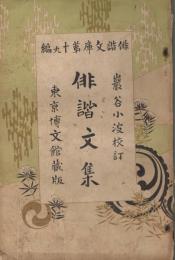 俳諧文庫第十九編
巖谷小波校訂
俳諧文集
東京博文館藏版